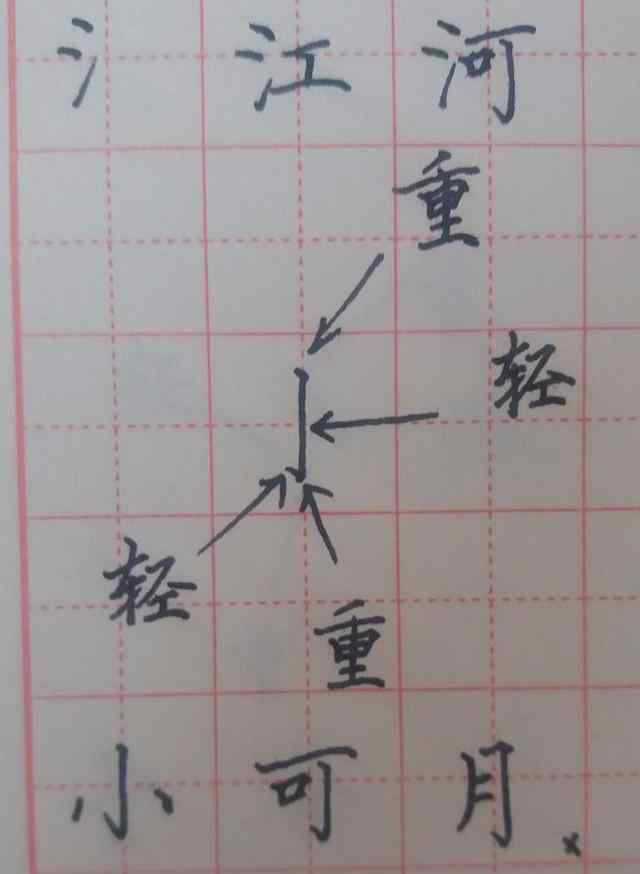 氵 江 河
重
轻
轻
重
小 可 月